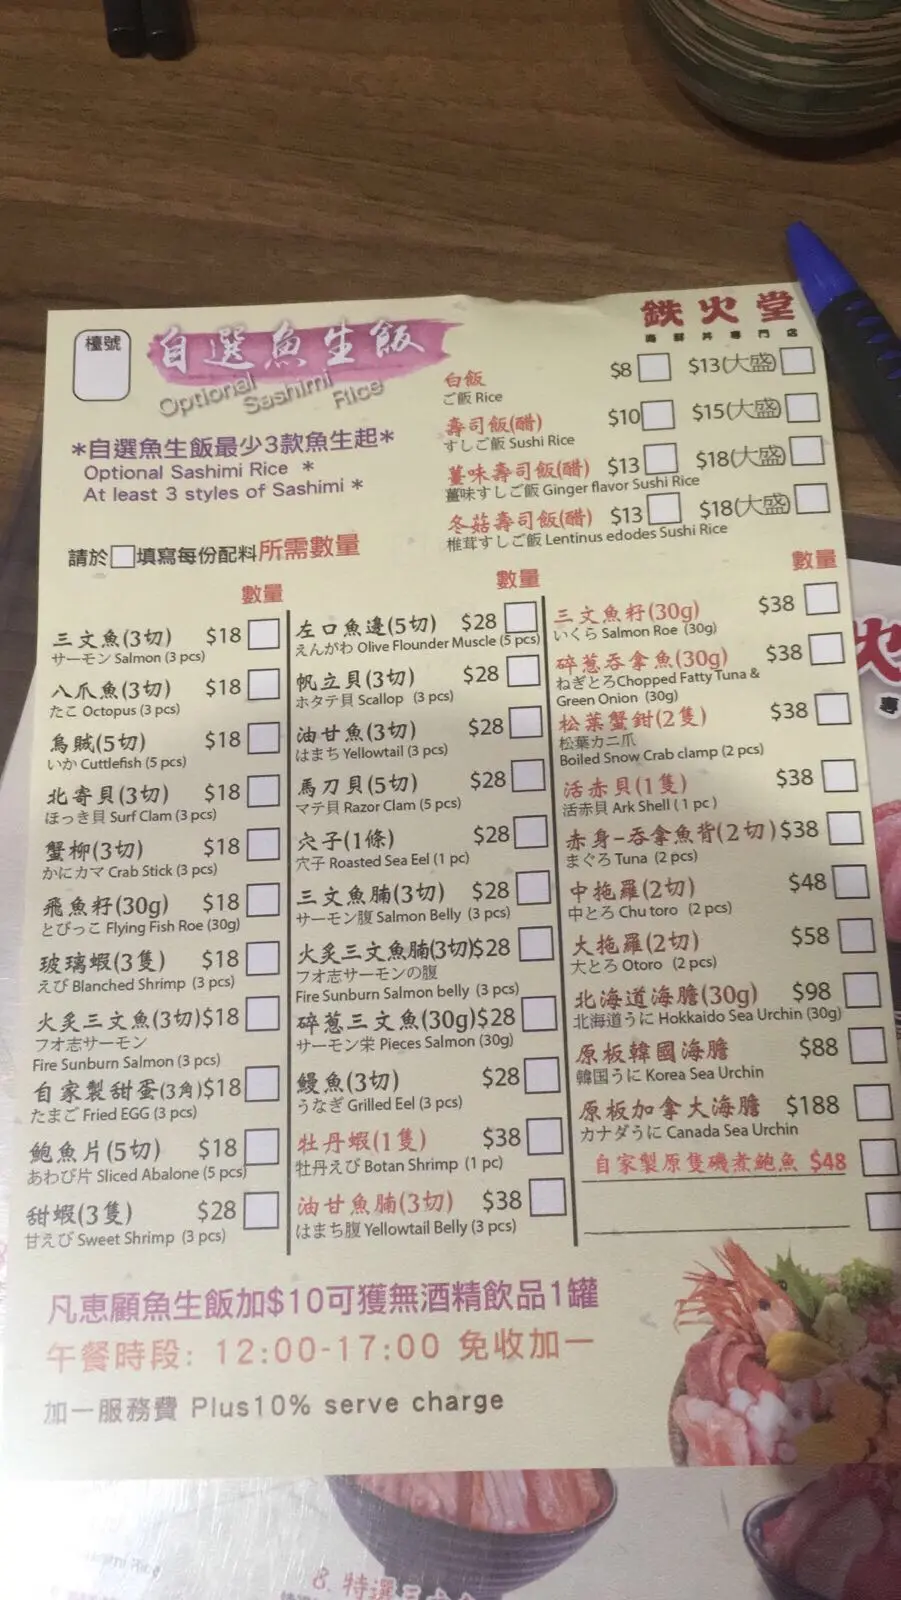 檯號
自選魚生飯
Optional Sashimi Rice
鉄火堂
海鮮丼專門店
*自選魚生飯最少3款魚生起*
Optional Sashimi Rice *
At least 3 styles of Sashimi *
請於□填寫每份配料所需數量
白飯 $8 $13(大盛)
ご飯 Rice
壽司飯(醋) $10 $15(大盛)
すしご飯 Sushi Rice
薑味壽司飯(醋) $13 $18(大盛)
薑味すしご飯 Ginger flavor Sushi Rice
冬菇壽司飯(醋) $13 $18(大盛)
椎茸すしご飯 Lentinus edodes Sushi Rice
數量
三文魚(3切) $18
サーモン Salmon (3 pcs)
八爪魚(3切) $18
たこ Octopus (3 pcs)
烏賊(5切) $18
いか Cuttlefish (5 pcs)
北寄貝(3切) $18
ほっき貝 Surf Clam (3 pcs)
蟹柳(3切) $18
かにカマ Crab Stick (3 pcs)
飛魚籽(30g) $18
とびっこ Flying Fish Roe (30g)
玻璃蝦(3隻) $18
えび Blanched Shrimp (3 pcs)
火炙三文魚(3切)$18
フオ志サーモン
Fire Sunburn Salmon (3 pcs)
自家製甜蛋(3角)$18
たまご Fried EGG (3 pcs)
鮑魚片(5切) $18
あわび片 Sliced Abalone (5 pcs)
甜蝦(3隻) $28
甘えび Sweet Shrimp (3 pcs)
數量
左口魚邊(5切) $28
えんがわ Olive Flounder Muscle (5 pcs)
帆立貝(3切) $28
ホタテ貝 Scallop (3 pcs)
油甘魚(3切) $28
はまち Yellowtail (3 pcs)
馬刀貝(5切) $28
マテ貝 Razor Clam (5 pcs)
穴子(1條) $28
穴子 Roasted Sea Eel (1 pc)
三文魚腩(3切) $28
サーモン腹 Salmon Belly (3 pcs)
火炙三文魚腩(3切)$28
フオ志サーモンの腹
Fire Sunburn Salmon belly (3 pcs)
碎蔥三文魚(30g)$28
サーモン栄 Pieces Salmon (30g)
鰻魚(3切) $28
うなぎ Grilled Eel (3 pcs)
牡丹蝦(1隻) $38
牡丹えび Botan Shrimp (1 pc)
油甘魚腩(3切) $38
はまち腹 Yellowtail Belly (3 pcs)
數量
三文魚籽(30g) $38
いくら Salmon Roe (30g)
碎蔥吞拿魚(30g) $38
ねぎとろ Chopped Fatty Tuna &
Green Onion (30g)
松葉蟹鉗(2隻) $38
松葉カニ爪
Boiled Snow Crab clamp (2 pcs)
活赤貝(1隻) $38
活赤貝 Ark Shell ( 1 pc )
赤身-吞拿魚背(2切)$38
まぐろ Tuna (2 pcs)
中拖羅(2切) $48
中とろ Chu toro (2 pcs)
大拖羅(2切) $58
大とろ Otoro (2 pcs)
北海道海膽(30g) $98
北海道うに Hokkaido Sea Urchin (30g)
原板韓國海膽 $88
韓国うに Korea Sea Urchin
原板加拿大海膽 $188
カナダうに Canada Sea Urchin
自家製原隻磯煮鮑魚 $48
凡惠顧魚生飯加$10可獲無酒精飲品1罐
午餐時段: 12:00-17:00 免收加一
加一服務費 Plus10% serve charge
火
專
8. 特選三文